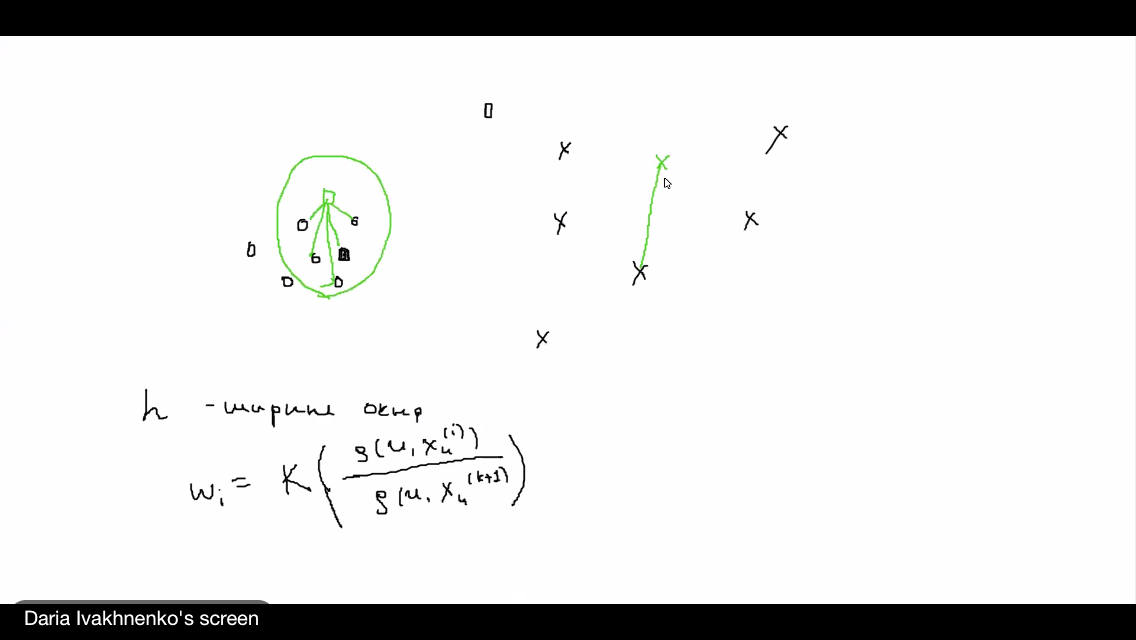 h - ширина окна
w_i = K ( ρ(u, x_u^(i)) / ρ(u, x_u^(k+1)) )
Daria Ivakhnenko's screen